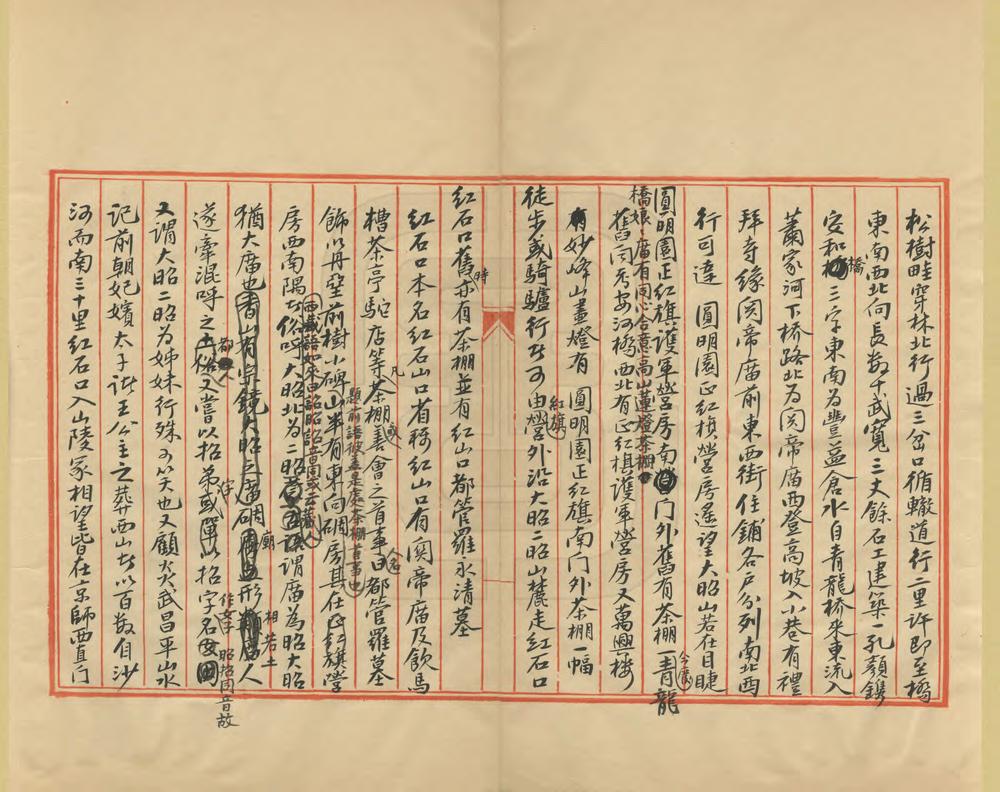 松樹畦穿林北行過三岔口循轍道行二里許即至橋
東南西北向長數十武寬三丈餘石工建築一孔顏鐫
安和橋三字東南為豐益倉水自青龍橋來東流入
蕭家河下橋路北為関帝廣西登高坡入小巷有禮
拜寺緣関帝廣前東西街住鋪各戶分列南北西
行可達 圓明園正紅旗營房遙望大昭山若在目睫
圓明園正紅旗護軍營房南門外舊有茶棚一青龍
橋娘娘廣有同心合意高山蓮燈茶棚
舊同秀安河橋西北有正紅旗護軍營房又萬興樓
有妙峰山畫燈有 圓明園正紅旗南門外茶棚一幅
徒步或騎驢行者可由紅旗營外沿大昭二昭山麓走紅石口
紅石口舊時亦有茶棚並有紅山口都管羅永清墓
紅石口本名紅石山口省稱紅山口有関帝廣及飲馬
槽茶亭駝店等凡茶棚或善會之首事曰都管羅墓
飾以丹堊前樹小碑山半有東向碉房其在正紅旗營
房西南隅者俗呼大昭北為二昭謂廣為昭大昭
猶大廣也香山有宗鏡大昭之廟碉形相若土人
遂牽混呼之又嘗以招弟或單以招字名女
又謂大昭二昭為姊妹行殊可笑也又顧炎武昌平山水
記前朝妃嬪太子諸王公主之葬西山者以百數自沙
河而南三十里紅石口入山陵冢相望皆在京師西直門